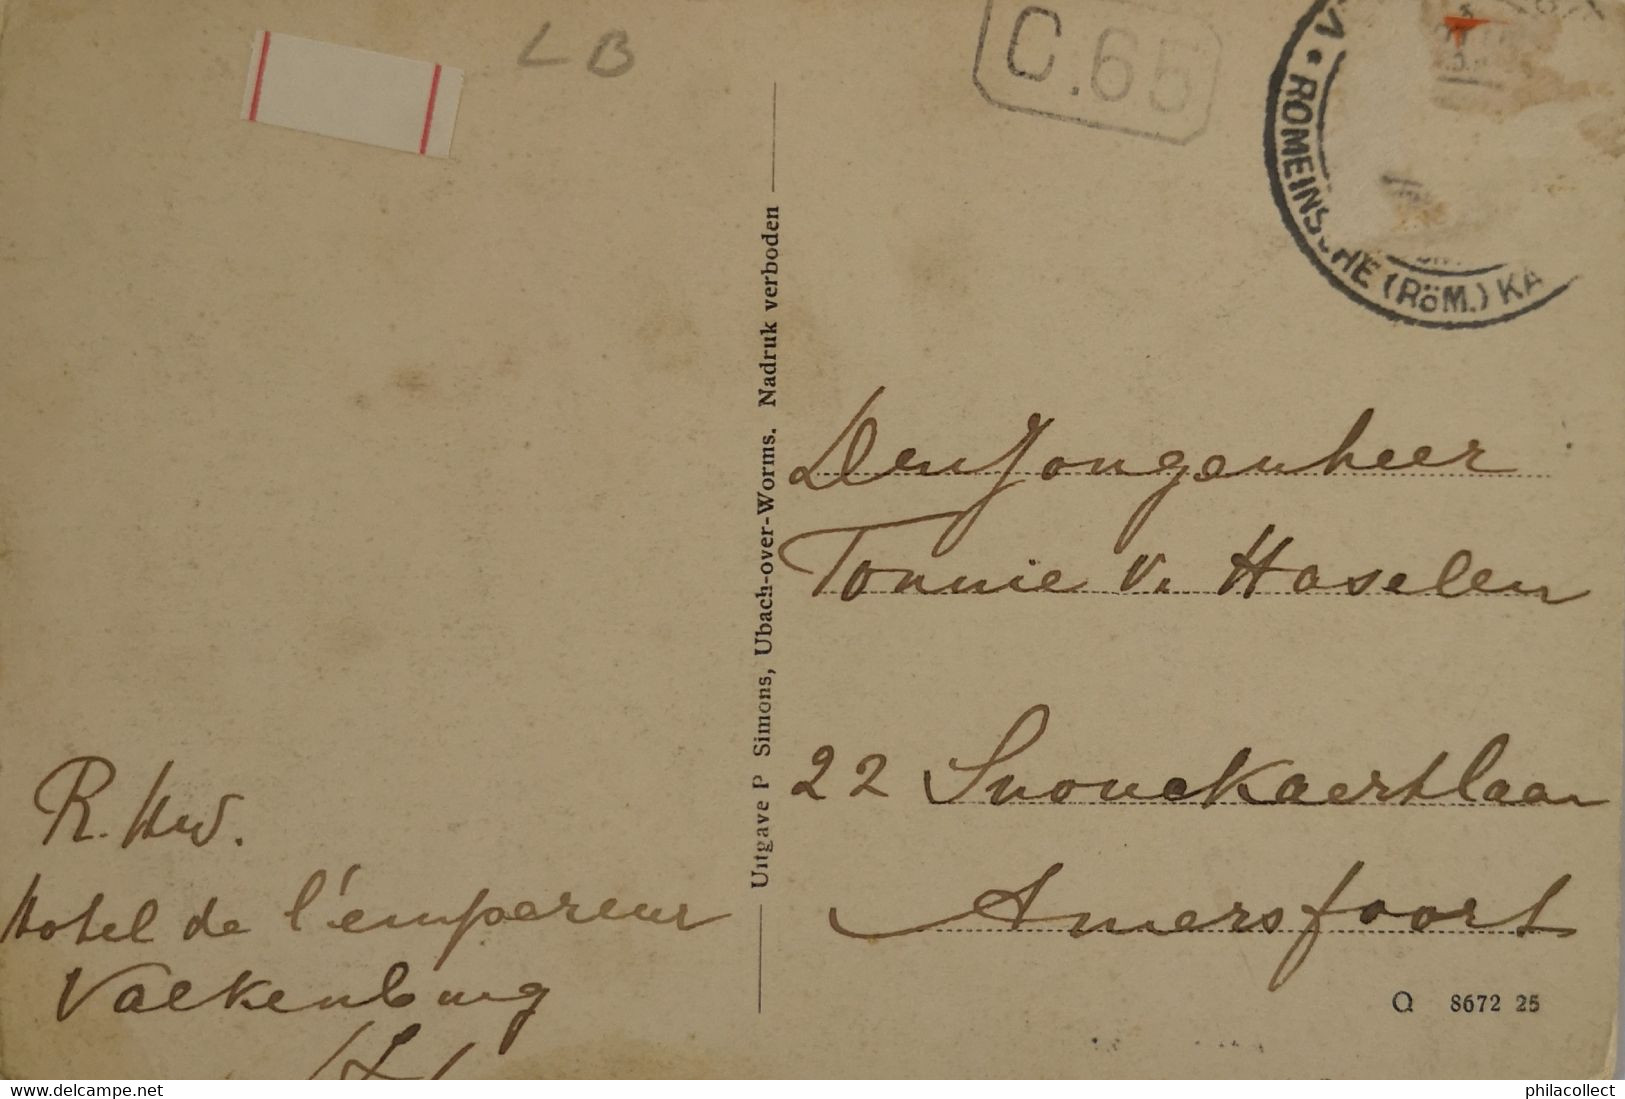 LB
C.65
ROMEINSCHE (RöM.) KA
Uitgave P Simons, Ubach-over-Worms. Nadruk verboden
Den Jongenheer
Tonnie v. Haselen
22 Snouckaertlaan
Amersfoort
R. Hud.
Hotel de l'empereur
Valkenburg
(L)
Q 8672 25
www.delcampe.net
philacollect